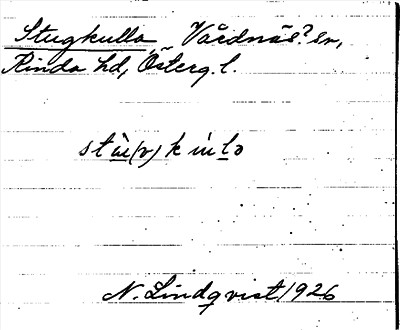 Stugkulla Vårdnäs? sn,
Kinda hd, Österg. l.
N. Lindqvist 1926